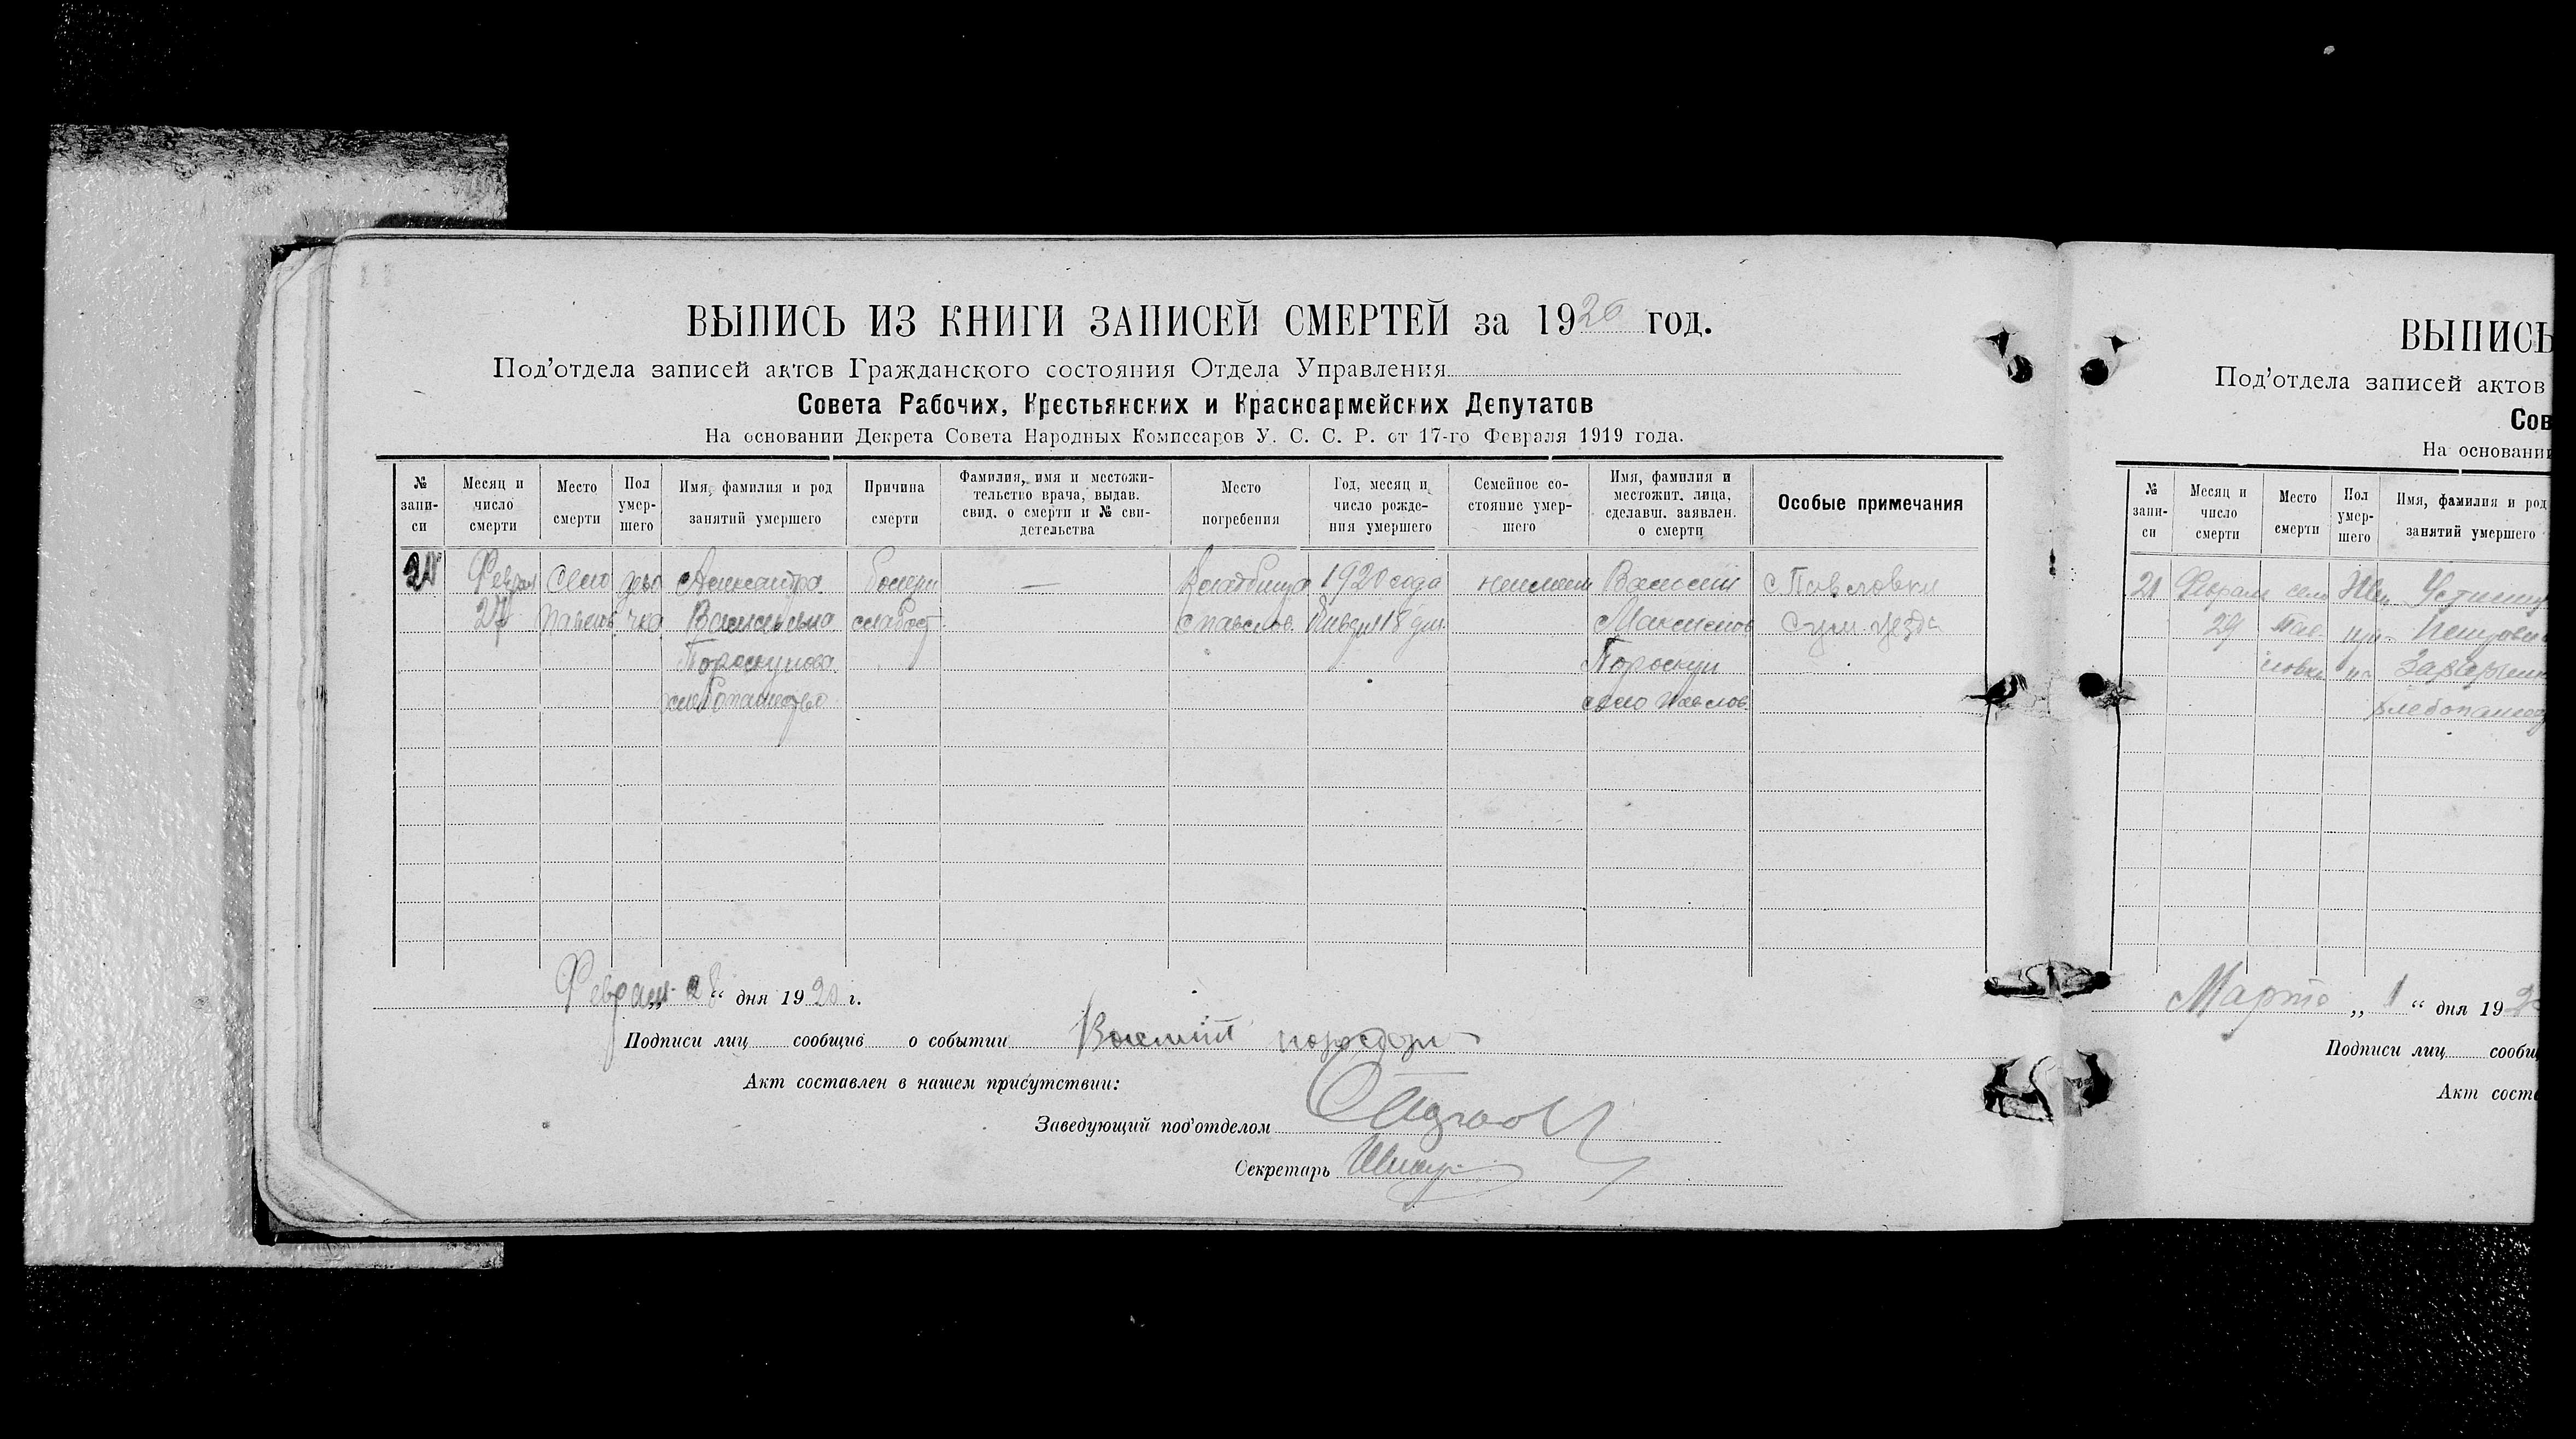 ВЫПИСЬ ИЗ КНИГИ ЗАПИСЕЙ СМЕРТЕЙ за 1920 год.
Под'отдела записей актов Гражданского состояния Отдела Управления
Совета Рабочих, Крестьянских и Красноармейских Депутатов
На основании Декрета Совета Народных Комиссаров У. С. С. Р. от 17-го Февраля 1919 года.
№ запи-
си
Месяц и
число
смерти
Место
смерти
Пол
умер-
шего
Имя, фамилия и род
занятий умершего
Причина
смерти
Фамилия, имя и местожи-
тельство врача, выдав.
свид. о смерти и № сви-
детельства
Место
погребения
Год, месяц и
число рожде-
ния умершего
Семейное со-
стояние умер-
шего
Имя, фамилия и
местожит. лица,
сделавш. заявлен.
о смерти
Особые примечания
Феврал
27
Село
Павлов
Александра
Васильевна
Хлебопашество
слабост
—
Кладбища
с павлов.
1920 года
Января 18 дня
Василий
Максимов
село Павлов.
с Павловки
Сум. уезда
Февраля „28“ дня 1920 г.
Подписи лиц сообщив о событии
Акт составлен в нашем присутствии:
Заведующий под'отделом
Секретарь
ВЫПИСЬ
Под'отдела записей актов
Сов
На основании
№
запи-
си
Месяц и
число
смерти
Место
смерти
Пол
умер-
шего
Имя, фамилия и род
занятий умершего
21
Феврал
29
село
Пав
ловка
Хлебопашес
Марта „1“ дня 192
Подписи лиц сообщ
Акт соста